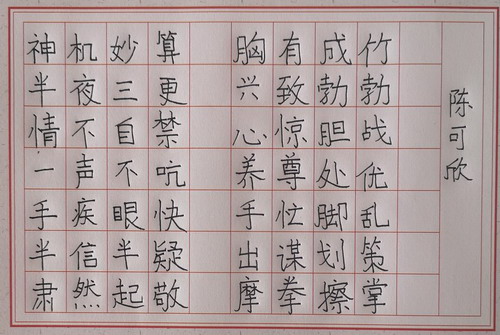 神机妙算 胸有成竹
半夜三更 兴致勃勃
情不自禁 心惊胆战
一声不吭 养尊处优
手疾眼快 手忙脚乱
半信半疑 出谋划策
肃然起敬 摩拳擦掌
陈可欣